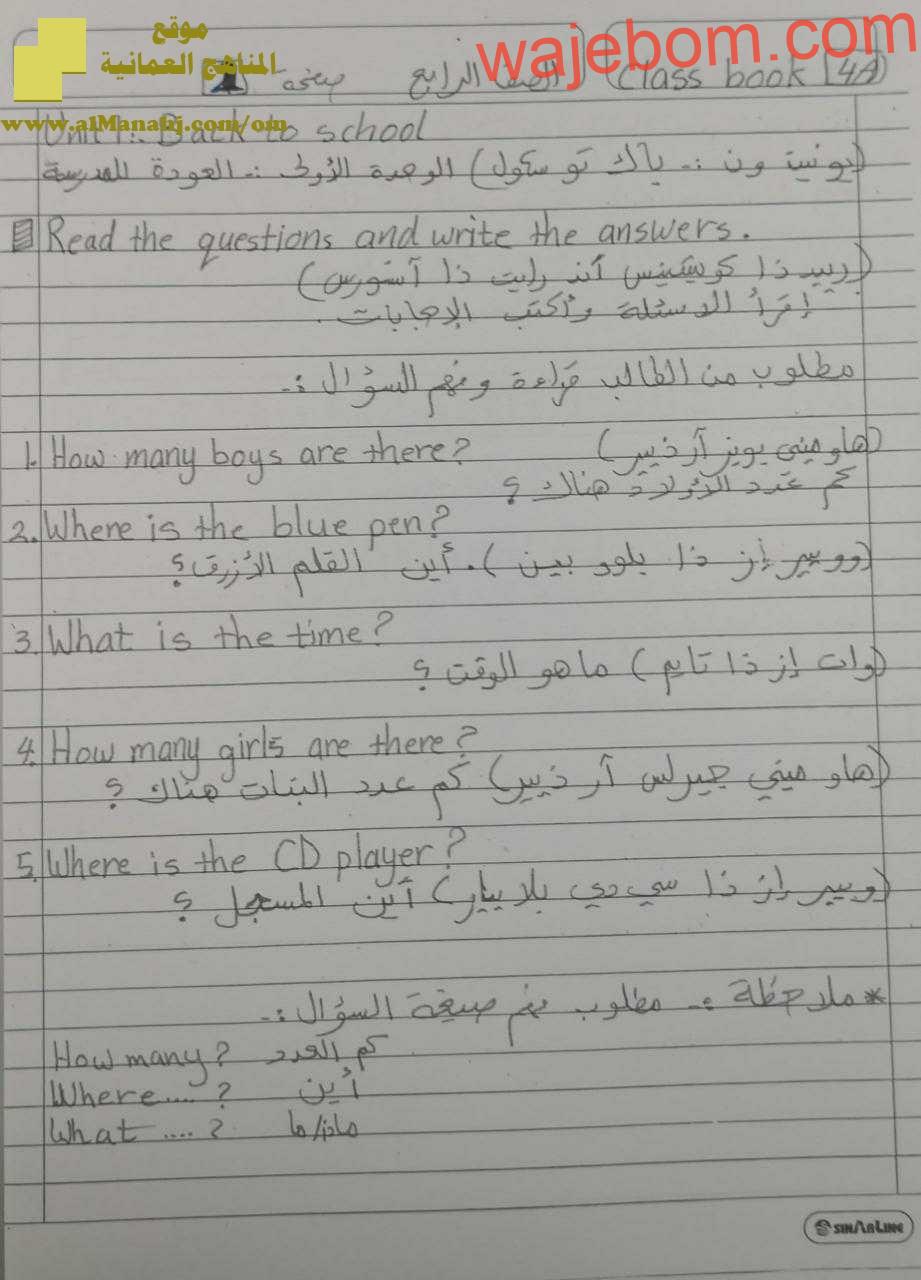 موقع
المناهج العمانية
www.alManahj.com/om
wajebom.com
Class book 4A الصف الرابع صفحة
Unit 1:. Back to school
(يونيت ون :. باك تو سكول) الوحدة الأولى :. العودة للمدرسة
Read the questions and write the answers.
(رييد ذا كويشينس أند رايت ذا آنسورس)
إقرأ الاسئلة وأكتب الإجابات.
مطلوب من الطالب قراءة وفهم السؤال :.
1. How many boys are there? (هاو ميني بويز آر ذيير)
كم عدد الأولاد هناك؟
2. Where is the blue pen?
(ووير إز ذا بلوو بين). أين القلم الأزرق؟
3. What is the time?
(وات إز ذا تايم) ما هو الوقت؟
4. How many girls are there?
(هاو ميني جيرلس آر ذيير) كم عدد البنات هناك؟
5. Where is the CD player?
(ويير إز ذا سي دي بلايير) أين المسجل؟
* ملاحظة :. مطلوب فهم صيغة السؤال :.
How many? كم العدد
Where....? أين
What ....? ماذا/ما
SINARLINE